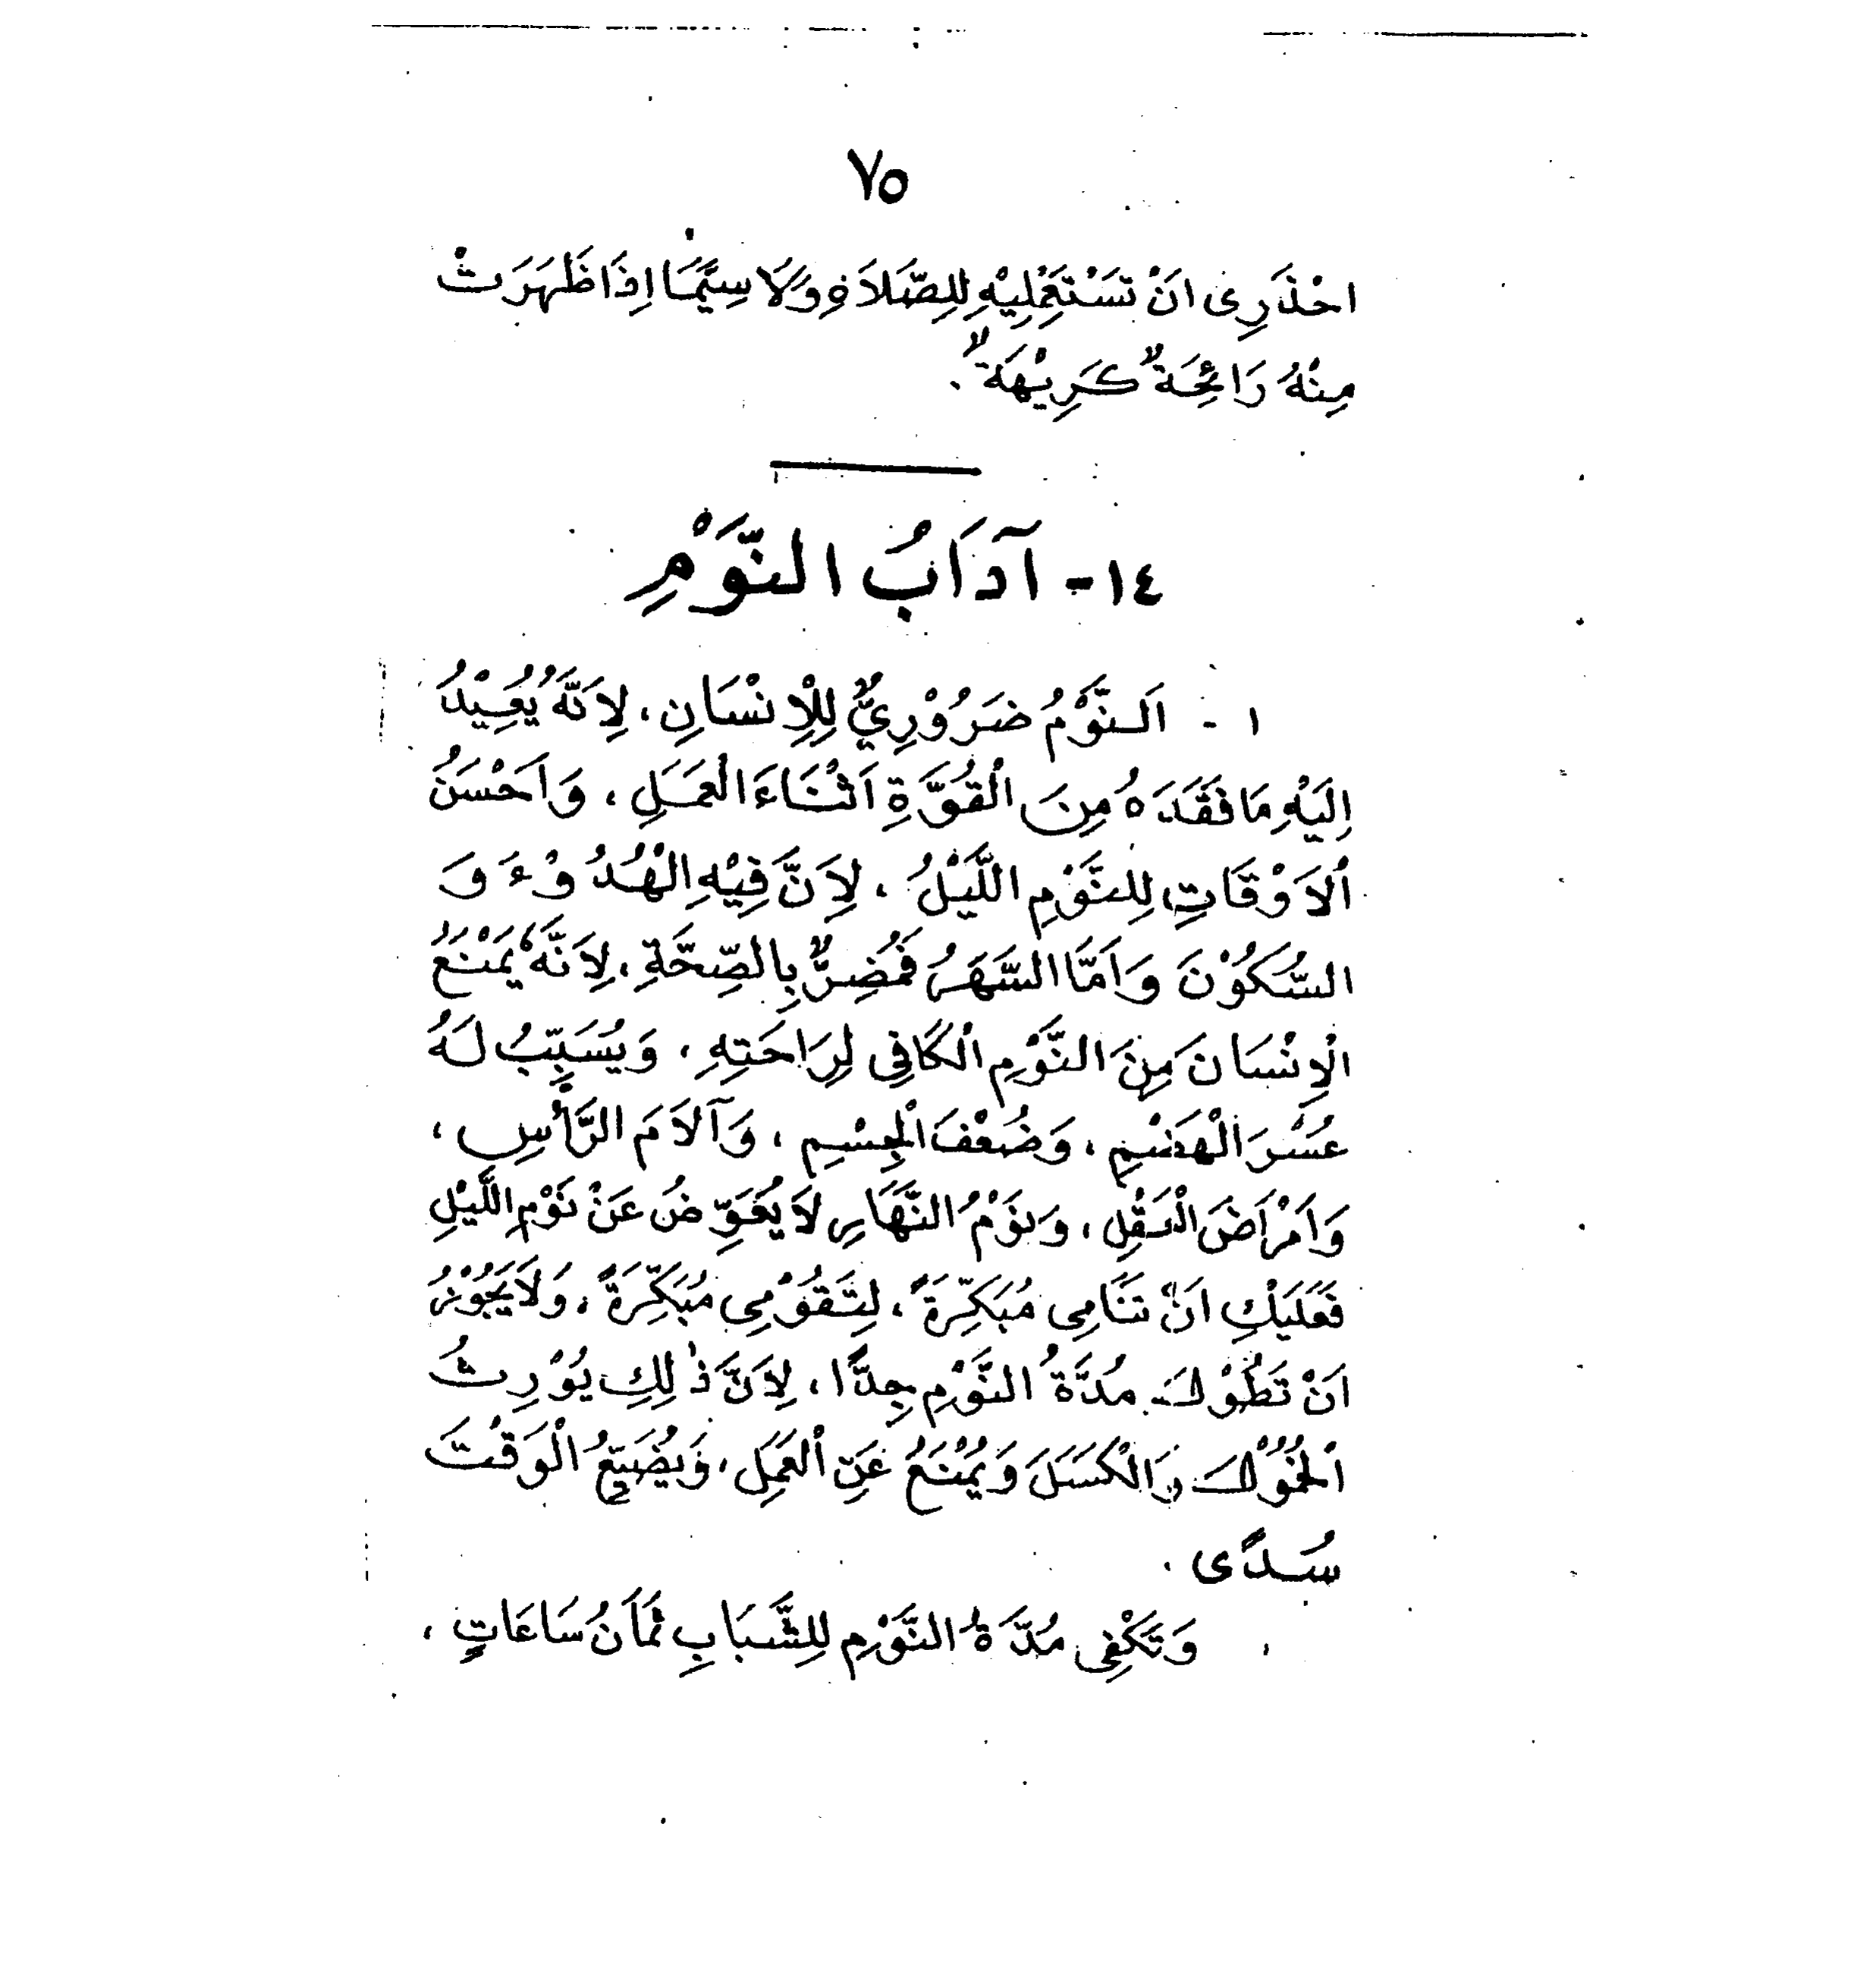 ٧٥
احْذَرِى اَنْ تَسْتَعْمِلِيْهِ لِلصَّلَاةِ وَلَا سِيَّمَا اِذَا ظَهَرَتْ
مِنْهُ رَائِحَةٌ كَرِيْهَةٌ .
١٤- آدَابُ النَّوْمِ
١ - اَلنَّوْمُ ضَرُوْرِيٌّ لِلْاِنْسَانِ، لِاَنَّهُ يُعِيْدُ
اِلَيْهِ مَا فَقَدَهُ مِنَ الْقُوَّةِ اَثْنَاءَ الْعَمَلِ، وَاَحْسَنُ
اْلاَوْقَاتِ لِلنَّوْمِ اللَّيْلُ، لِاَنَّ فِيْهِ الْهُدُوْءَ وَ
السُّكُوْنَ وَاَمَّا السَّهَرُ فَمُضِرٌّ بِالصِّحَّةِ، لِاَنَّهُ يَمْنَعُ
الْاِنْسَانَ مِنَ النَّوْمِ الْكَافِى لِرَاحَتِهِ، وَيُسَبِّبُ لَهُ
عُسْرَ الْهَضْمِ، وَضُعْفَ الْجِسْمِ، وَآلَامَ الرَّأْسِ،
وَاَمْرَاضَ الْعَقْلِ، وَنَوْمُ النَّهَارِ لَا يُعَوِّضُ عَنْ نَوْمِ اللَّيْلِ
فَعَلَيْكِ اَنْ تَنَامِى مُبَكِّرَةً، لِتَقُوْمِى مُبَكِّرَةً، وَلَا يَجُوْزُ
اَنْ تَطُوْلَ مُدَّةُ النَّوْمِ جِدًّا، لِاَنَّ ذٰلِكِ يُوْرِثُ
الْخُمُوْلَ وَالْكَسَلَ وَيَمْنَعُ عَنِ الْعَمَلِ، وَيُضَيِّعُ الْوَقْتَ
سُدًى .
وَتَكْفِى مُدَّةُ النَّوْمِ لِلشَّبَابِ ثَمَانُ سَاعَاتٍ،